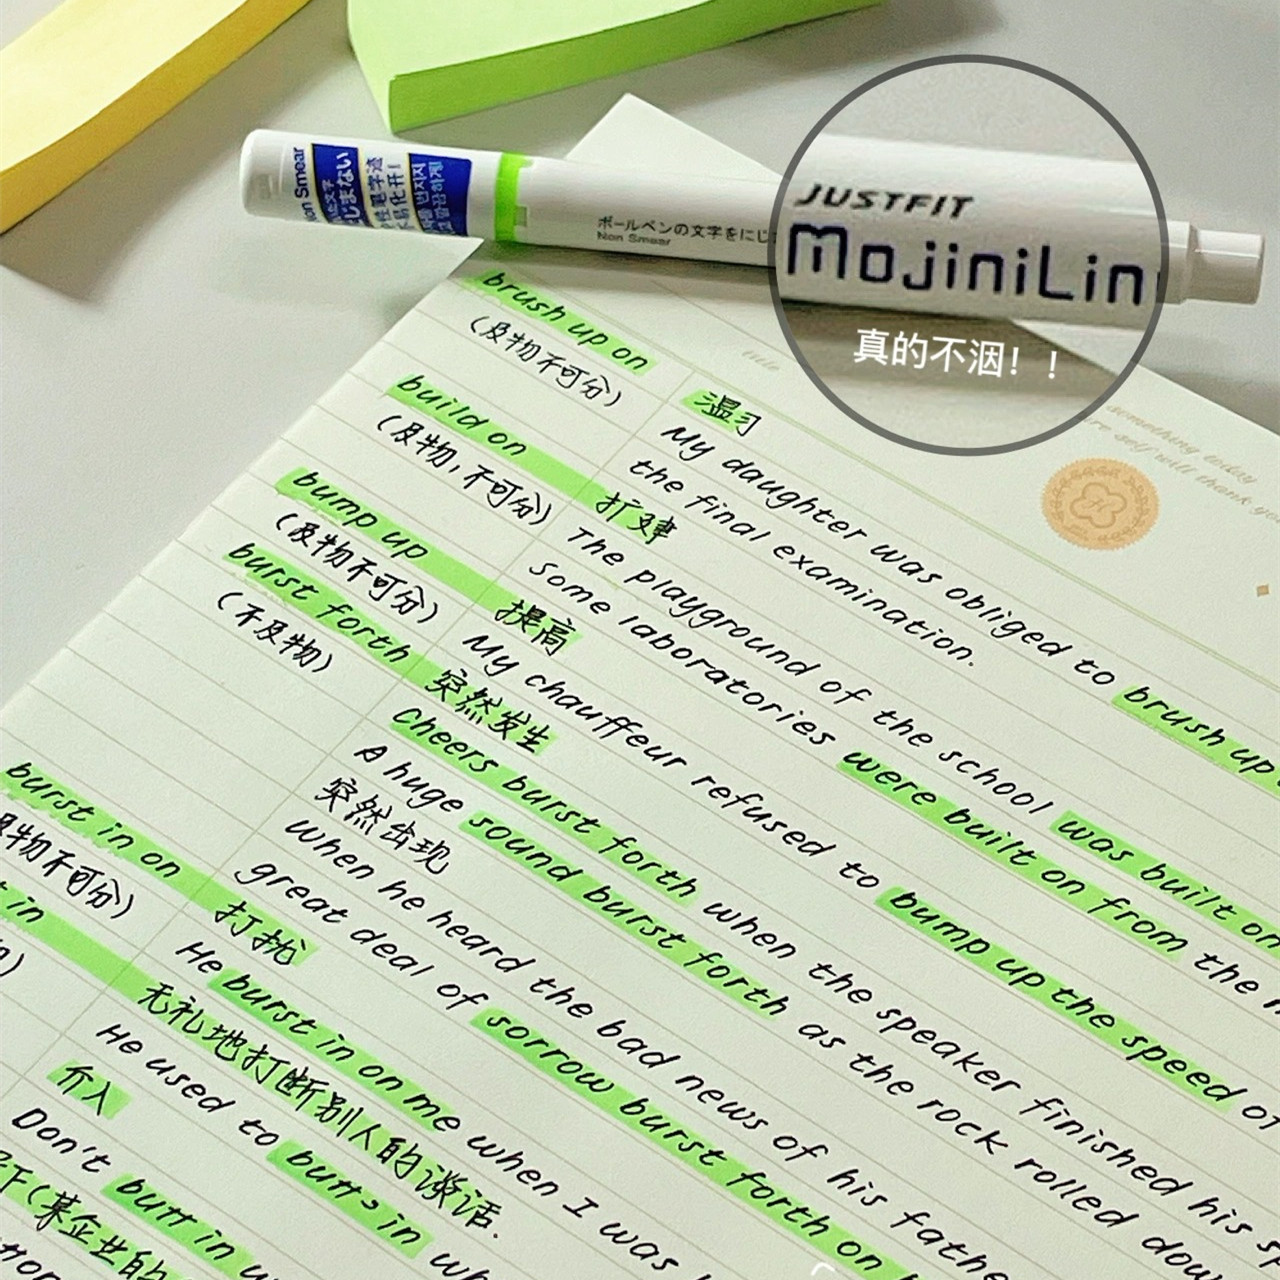 Non Smear
にじまない
ボールペンの文字をにじ
Non Smear
JUSTFIT
MojiniLin
真的不洇！！
title
something today
self will thank
brush up on
(及物不可分)
温习
My daughter was obliged to brush up
the final examination.
build on
(及物,不可分)
扩建
The playground of the school was built on
Some laboratories were built on from the
bump up
(及物不可分)
提高
My chauffeur refused to bump up the speed of
burst forth
(不及物)
突然发生
Cheers burst forth when the speaker finished his
A huge sound burst forth as the rock rolled dow
突然出现
When he heard the bad news of his fathe
great deal of sorrow burst forth on
burst in on
及物不可分)
打扰
He burst in on me when I was
in
无礼地打断别人的谈话.
He used to butts in wh
介入
Don't butt in
(某企业的